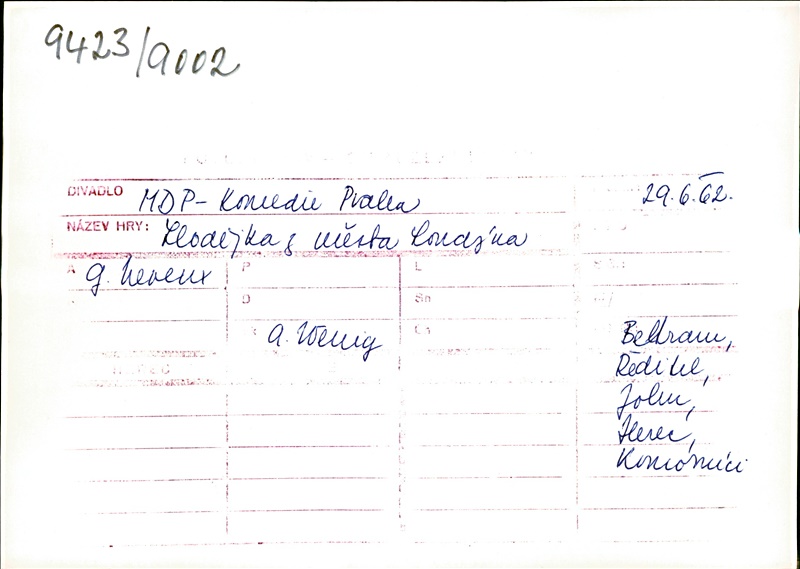 9423/9002
DIVADLO MDP - Komedie Praha 29.6.62.
NÁZEV HRY: Zlodějka z města Londýna
A G. Neveux P L
D Sn
A. Wenig
Beltram,
Ředitel,
John,
Herec,
Komorníci